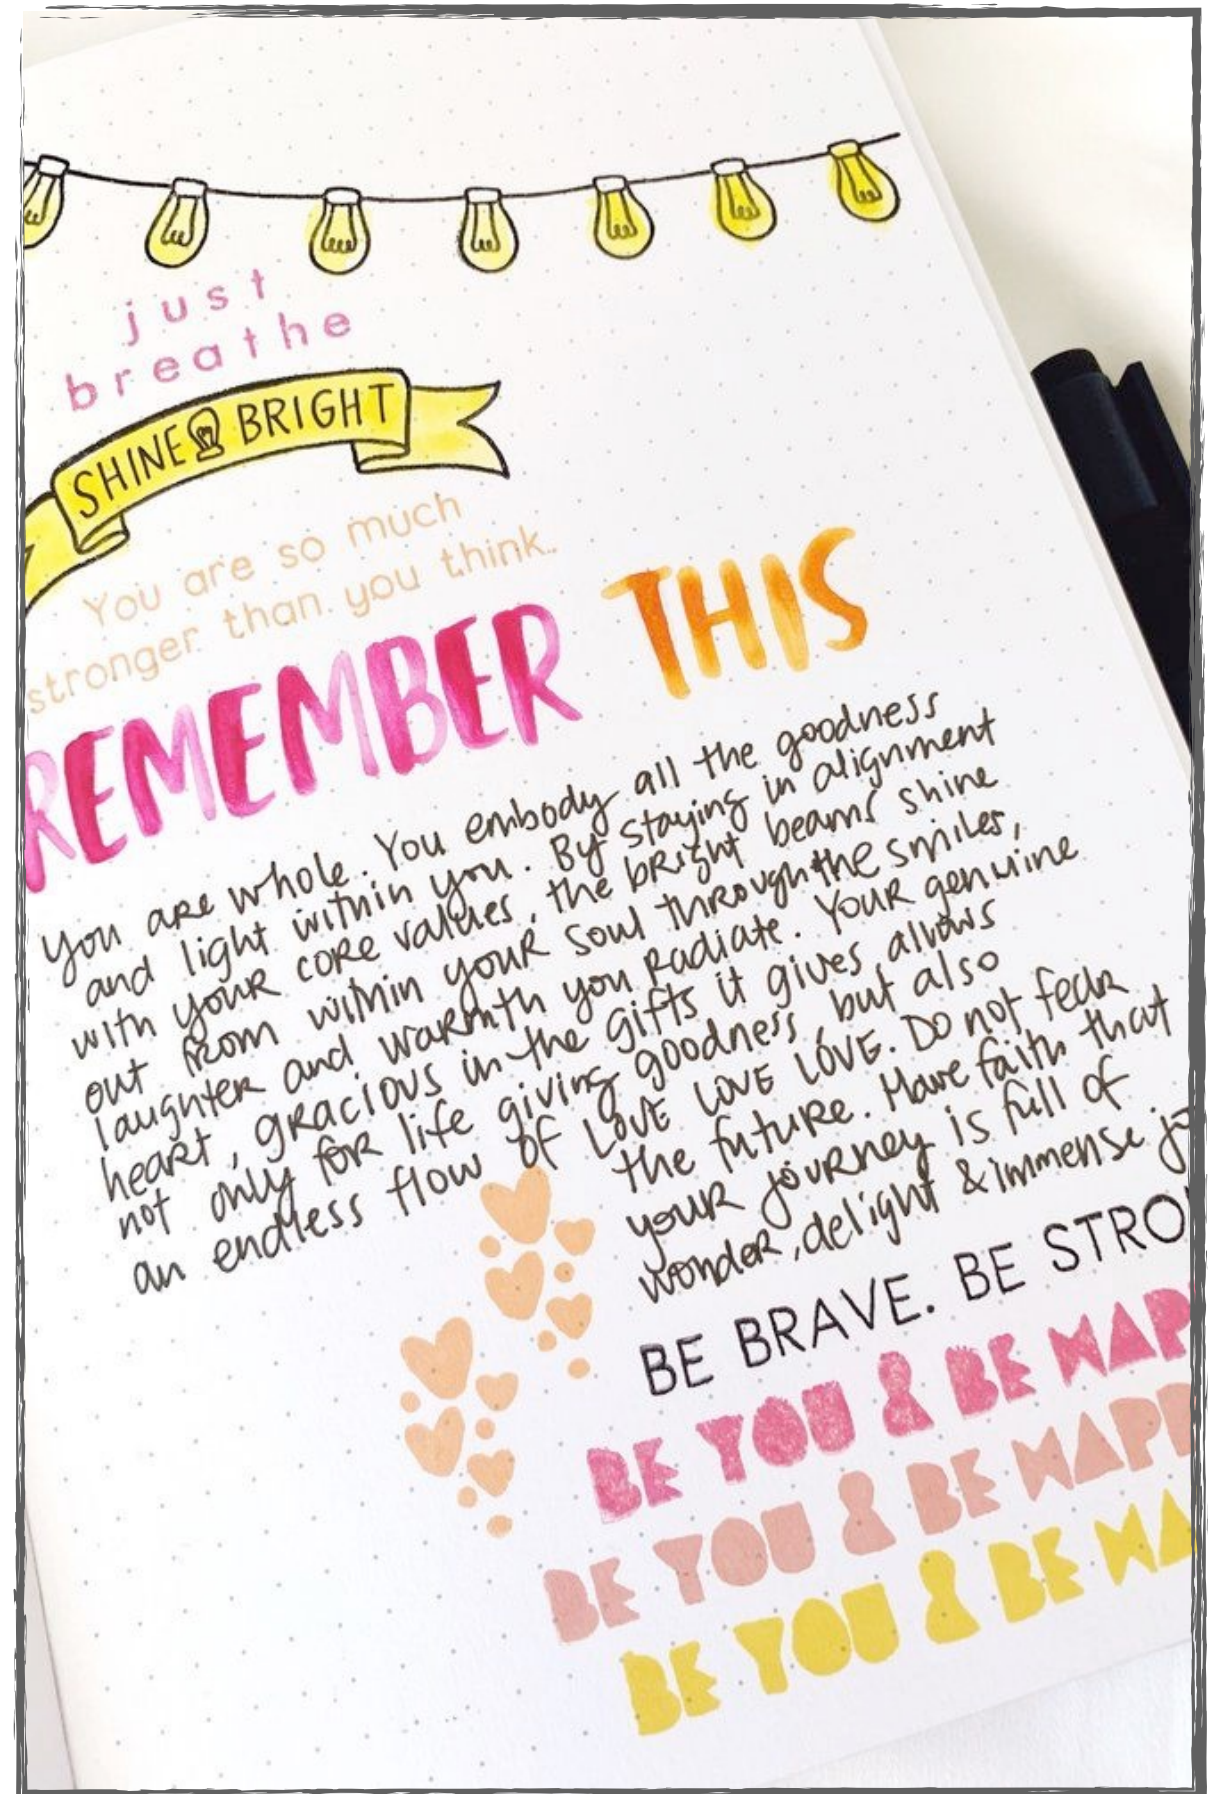 just
breathe
SHINE BRIGHT
You are so much
stronger than you think..
REMEMBER THIS
You are whole. You embody all the goodness
and light within you. By staying in alignment
with your core values, the bright beams shine
out from within your soul through the smiles,
laughter and warmth you radiate. Your genuine
heart, gracious in the gifts it gives, allows
not only for life giving goodness, but also
an endless flow of LOVE LOVE LOVE. Do not fear
the future. Have faith that
your journey is full of
wonder, delight & immense jo
BE BRAVE. BE STRO
BE YOU & BE HAPP
BE YOU & BE HAPP
BE YOU & BE HA